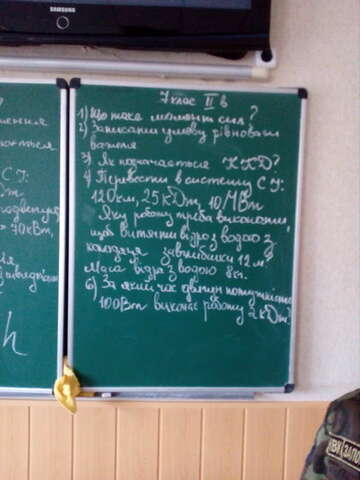 SAMSUNG
7 клас II в
1) Що таке момент сил?
2) Записати умову рівноваги
важеля
3) Як позначається ККД?
4) Перевести в систему СІ:
120 км, 25 кДж, 10 МВт
Яку роботу треба виконати,
щоб витягти відро з водою з
колодязя завглибшки 12 м
Маса відра з водою 8 кг.
6) За який час двигун потужністю
100 Вт виконає роботу 2 кДж?
кВт,
h
ЗАПО